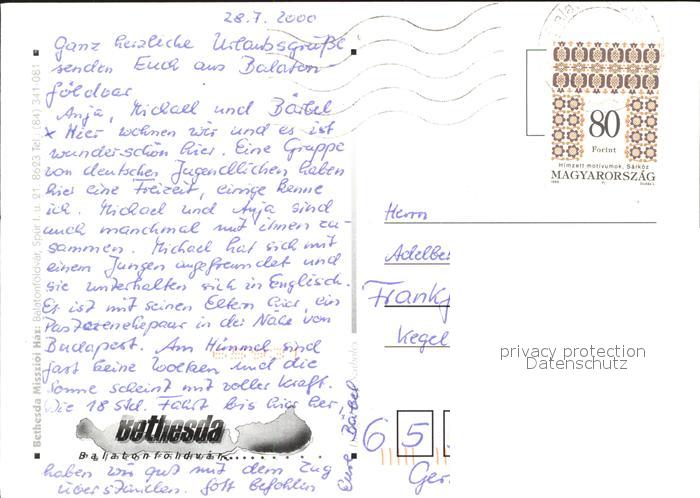 28.7.2000
Ganz herzliche Urlaubsgrüße
senden Euch aus Balaton-
földvar
Anja, Michael und Bärbel
x Hier wohnen wir und es ist
wunderschön hier. Eine Gruppe
von deutschen Jugendlichen haben
hier eine Freizeit, einige kenne
ich. Michael und Anja sind
auch manchmal mit ihnen zu-
sammen. Michael hat sich mit
einem Jungen angefreundet und
sie unterhalten sich in Englisch.
Er ist mit seinen Eltern hier, ein
Pastorenehepaar in der Nähe von
Budapest. Am Himmel sind
fast keine Wolken und die
Sonne scheint mit voller Kraft.
Die 18 Std. Fahrt bis hier her,
haben wir gut mit dem Zug
überstanden. Gott befohlen
Eure Bärbel
Bethesda
Balatonföldvár
Bethesda Missziói Ház: Balatonföldvár, Spúr I. u. 21 8623 Tel.: (84) 341-081
80
Forint
Hímzett motívumok, Sárköz
MAGYARORSZÁG
Herrn
Adelbe
Frankf
Kegel
65
Ger
privacy protection
Datenschutz